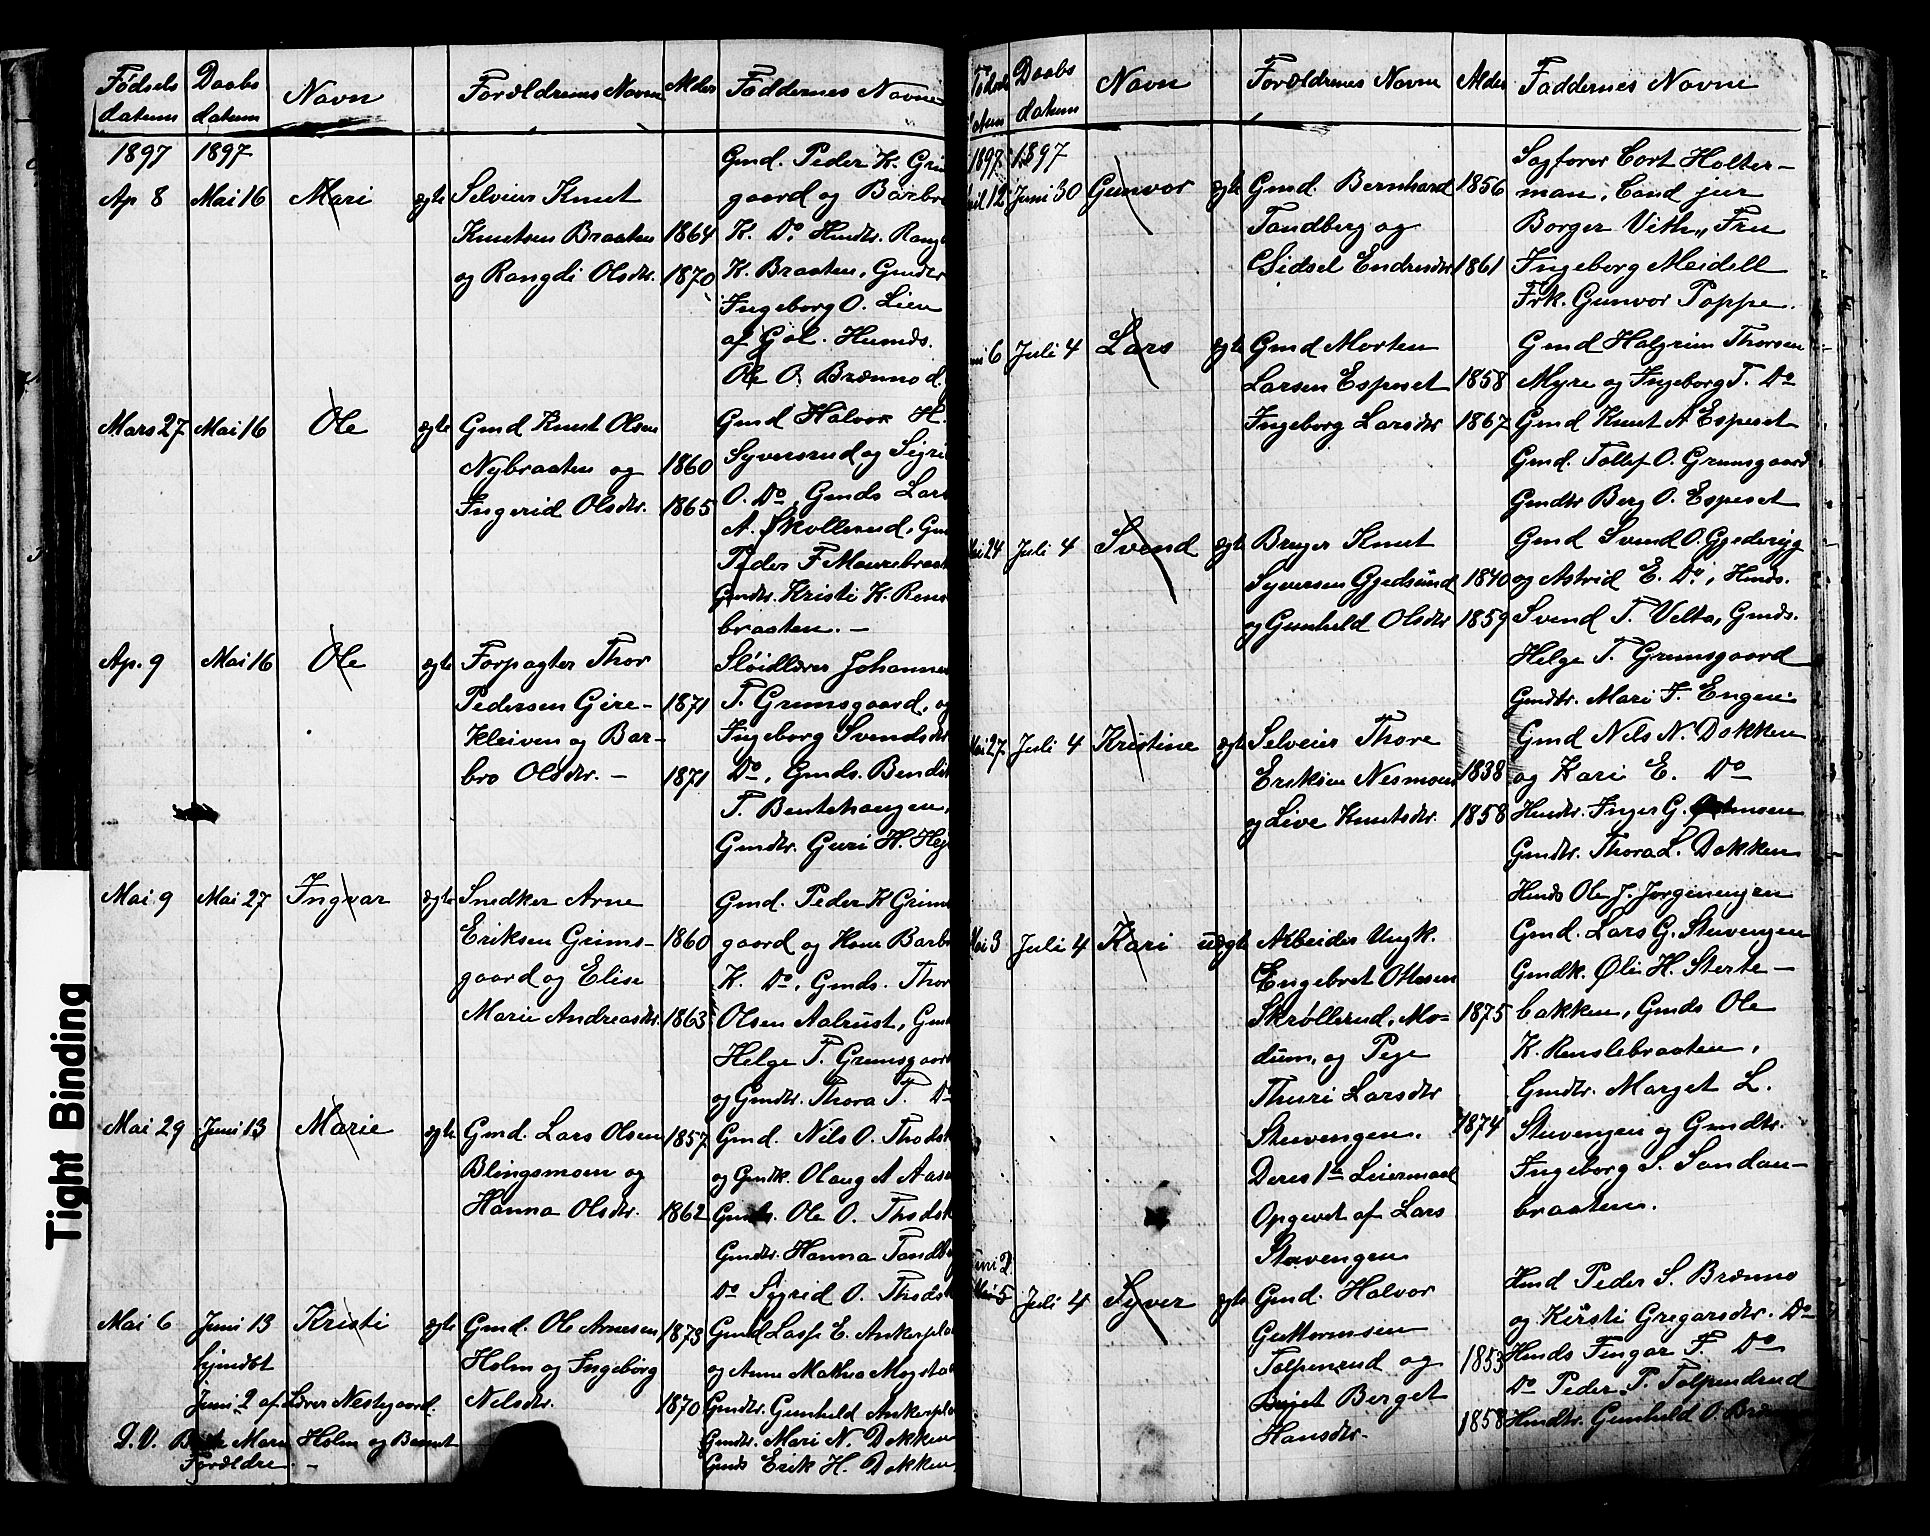 Fødsels Daabs Navn Forældrenes Navne Alder Faddernes Navne
datum datum
1897 1897 Gmd. Peder K. Grims
Ap 8 Mai 16 Mari ægte Selveier Knut gaard og Barbro
Knutsen Braaten 1864 K. Do. Hmdtr. Rangdi
og Rangdi Olsdtr. 1870 K. Braaten, Gmdtr
Ingeborg O. Lien
af Gol. Hmds.
Ole O. Brænno d.
Mars 27 Mai 16 Ole ægte Gmd Knut Olsen Gmd Halvor H.
Nybraaten og 1860 Syversrud og Sigri
Ingerid Olsdtr. 1865 O. Do, Gmds Lars
A. Skollerud, Gm
Peder F Maurebraat
Gmdtr. Kristi K. Rens
braaten. —
Ap. 9 Mai 16 Ole ægte Forpagter Thor Sløidlærer Johannes
Pedersen Gire- 1871 T. Grimsgaard, og
Kleiven og Bar- Ingeborg Svendsdtr
bro Olsdtr. — 1871 Do, Gmds. Bendik
T. Bentehaugen,
Gmdtr. Guri H. Hej
Mai 9 Mai 27 Ingvar ægte Snedker Arne Gmd. Peder K Grims
Eriksen Grims- 1860 gaard og Kone Barbro
gaard og Elise K. Do, Gmds. Thor
Marie Andreasdtr. 1863 Olsen Aalrust, Gmds
Helge T. Grimsgaard
og Gmdtr. Thora T. Do
Mai 29 Juni 13 Marie ægte Gmd. Lars Olsen 1857 Gmd. Nils O. Thodsk
Blingsmoen og og Gmdk. Olaug A Aasa
Hanna Olsdtr. 1862 Gmds. Ole O. Thodsk
Gmdtr. Hanna Tandb
Do Sigrid O. Thodsk
Mai 6 Juni 13 Kristi ægte Gmd. Ole Arnesen 1873 Gmd Lasse E. Ankerpla
hjmdbt Holm og Ingeborg og Anne Mathea Mogsta
Juni 2 af Lærer Nestegaard. Nelsdtr. 1870 Gmdtr. Gunhild Ankerpla
D. V. Mari Holm og Barnet Gmdtr. Mari N. Dokken
Forældre. — Gmds Erik H. Dokken,
Fødsels Daabs Navn Forældrenes Navne Alder Faddernes Navne
datum datum
1897 1897 Sagfører Cort Holter-
April 12 Juni 30 Gunvor ægte Gmd. Bernhard 1856 man, Cand jur
Tandberg og Borger Vith, Fru
Sidsel Endresdtr 1861 Ingeborg Meidell
Frk. Gunvor Poppe.
6 Juli 4 Lars ægte Gmd Morten Gmd Halgrim Thorsen
Larsen Espeset 1858 Myre og Ingeborg T. Do
Ingeborg Larsdtr 1867 Gmd Knut A Espeset
Gmd. Tollef O. Grimsgaard
Gmdtr Berg O. Espeset
Mai 24 Juli 4 Svend ægte Bruger Knut Gmd Svend O. Gjederyg
Syversen Gjedsund 1840 og Astrid E. Do, Hmds.
og Gunhild Olsdtr 1859 Svend T. Velta, Gmds.
Helge T. Grimsgaard
Gmdtr. Mari F. Engen
Mai 27 Juli 4 Kristine ægte Selveier Thore Gmd Nils N. Dokken
Eriksen Nesmoen 1838 og Kari E. Do
og Live Knutsdtr. 1858 Hmdtr. Inger G.
Gmdtr. Thora L. Dokken
Hmds Ole J. Jorgenengen
Mai 3 Juli 4 Kari uægte Arbeider Ungk. Gmd. Lars G. Stuvengen
Engebret Ottesen Gmdk. Øli H. Sterte-
Skrøllerud, Mo- 1875 bakken, Gmds Ole
dum, og Pige K. Renslebraaten,
Thuri Larsdtr Gmdtr. Marget L.
Stuvengen. 1874 Stuvengen og Gmdtr.
Deres 1ste Leiermaal Ingeborg S. Sandan-
Opgevet af Lars braaten.
Stuvengen
Juni 2 Hmd Peder S. Brænno
Mai 5 Juli 4 Syver ægte Gmd. Halvor og Kirsti Gregarsdtr. Do
Guttormsen Hmds Fingar F. Do
Tolpenrud og 1853 Do Peder P. Tolpendrud
Berget 1858 Hmdtr. Gunhild O. Bræn
Hansdtr.
Tight Binding